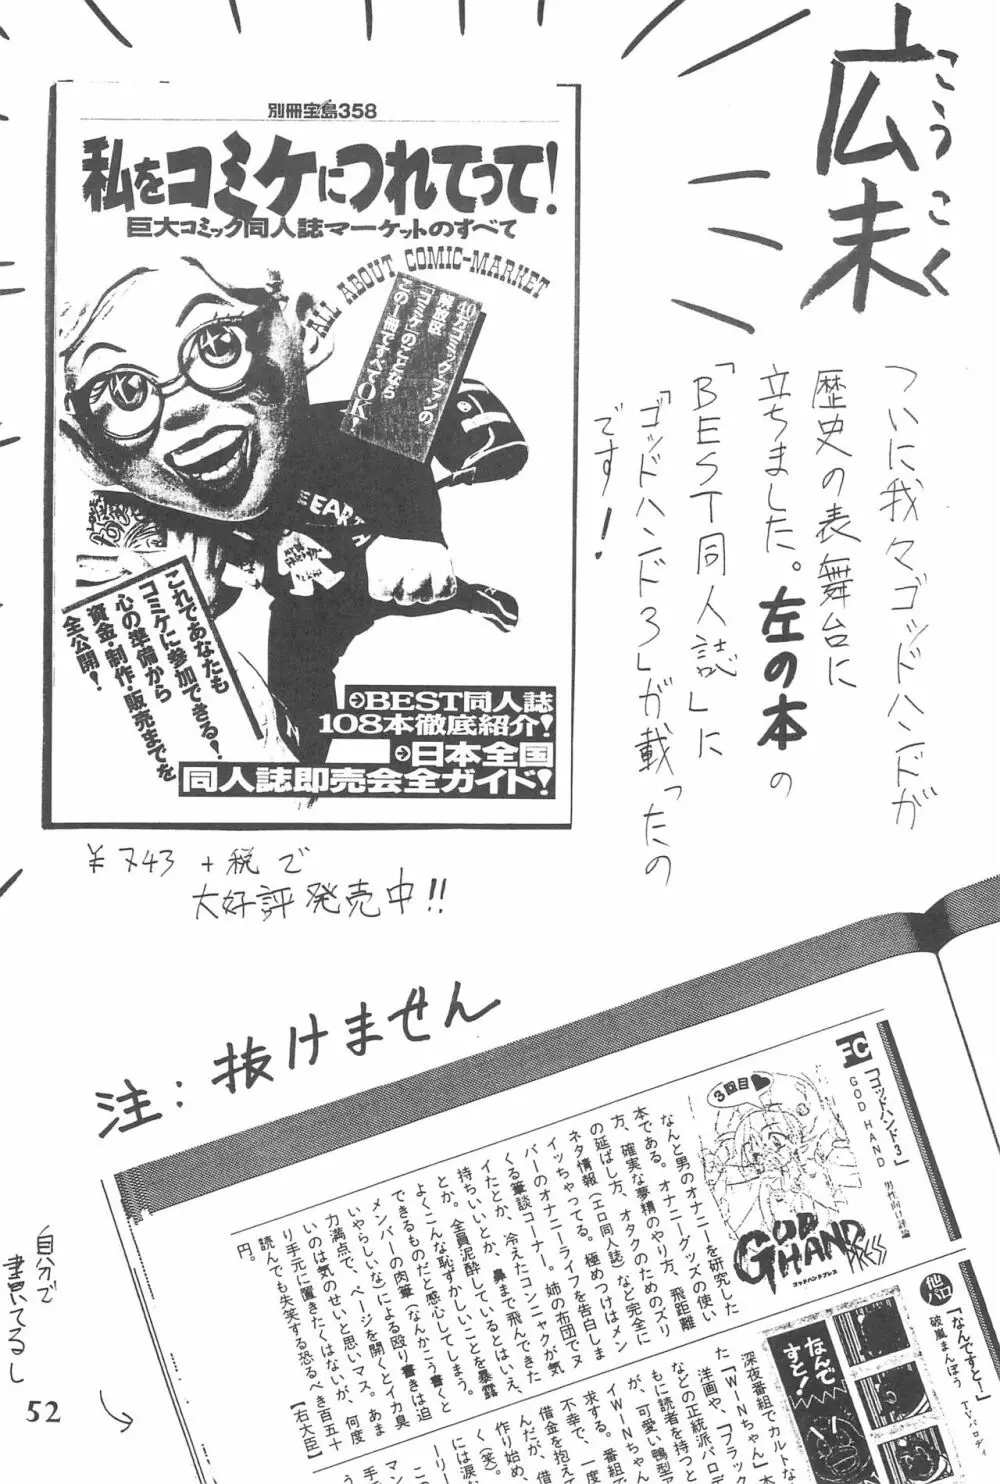 広末
こうこく
ついに我々ゴッドハンドが
歴史の表舞台に
立ちました。左の本の
「BEST同人誌」に
「ゴッドハンド3」が載ったの
です!
別冊宝島358
私をコミケにつれてって!
巨大コミック同人誌マーケットのすべて
ALL ABOUT COMIC-MARKET
40万コミックファンの
解放区
「コミケ」のことなら
この1冊ですべてOK!
EARTH
これであなたも
コミケに参加できる!
心の準備から
資金・制作・販売までを
全公開!
BEST同人誌
108本徹底紹介!
日本全国
同人誌即売会全ガイド!
¥743+税で
大好評発売中!!
注:抜けません
FC
「ゴッドハンド3」
GOD HAND
男性向け評論
3回目
GOD HAND PRESS
ゴッドハンドプレス
なんと男のオナニーを研究した
本である。オナニーグッズの使い
方、確実な夢精のやり方、飛距離
の延ばし方、オタクのためのズリ
ネタ情報(エロ同人誌)など完全に
イッちゃってる。極めつけはメン
バーのオナニーライフを告白しま
くる筆談コーナー。姉の布団でヌ
イたとか、冷えたコンニャクが気
持ちいいとか、鼻まで飛んできた
とか。全員泥酔しているとはいえ、
よくこんな恥ずかしいことを暴露
できるものだと感心してしまう。
メンバーの肉筆(なんかこう書くと
いやらしいな)による殴り書きは迫
力満点で、ページを開くとイカ臭
いのは気のせいと思いマス。あま
り手元に置きたくはないが、何度
読んでも失笑する恐るべき百五十
円。【右大臣】
他パロ
「なんですと!」
破嵐まんぼう
TVパロディ
なんで
すと!
深夜番組でカルトな
た「WINちゃん」本
洋画や、「ブラック
などの正統派パロデ
もに読者を持つと
が、可愛い鴨型テ
イWINちゃん
求する。番組で
不幸で、一度
んだが、借
借金を抱えて
作り始め、
く(笑)。
には涙な
マン
ーリー
手元
自分で
書いてるし
52